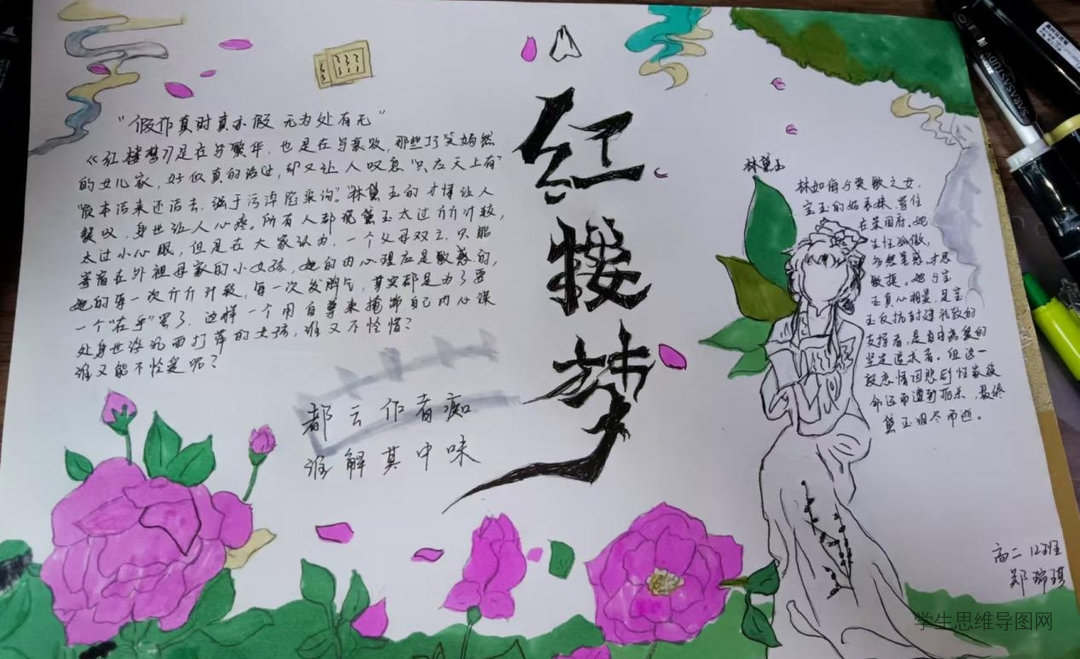 "假作真时真亦假 无为处有无"
《红楼梦》是在写繁华,也是在写衰败,那些巧笑嫣然
的女儿家,好似真的活过,却又让人叹息"只应天上有"
质本洁来还洁去,强于污淖陷渠沟。林黛玉的才情让人
赞叹,身世让人心疼。所有人都说黛玉太过斤斤计较,
太过小心眼,但是在大家认为,一个父母双亡,只能
寄宿在外祖母家的小女孩,她的内心理应是敏感的,
她的每一次斤斤计较,每一次发脾气,其实都是为了要
一个"在乎"罢了,这样一个用自尊来掩饰自己内心深
处身世浮沉雨打萍的女孩,谁又不怜惜?
谁又能不怜爱呢?
都云作者痴
谁解其中味
红楼梦
林黛玉
林如海与贾敏之女,
宝玉的姑表妹,寄住
在荣国府。她
生性孤傲,
多愁善感,才思
敏捷。她与宝
玉真心相爱,是宝
玉反抗封建礼教的
支持者,是自由恋爱的
坚定追求者。但这一
段恋情因悲剧性家族
命运而遭到扼杀,最终
黛玉泪尽而逝。
高二12班
郑瑞琪
学生思维导图网